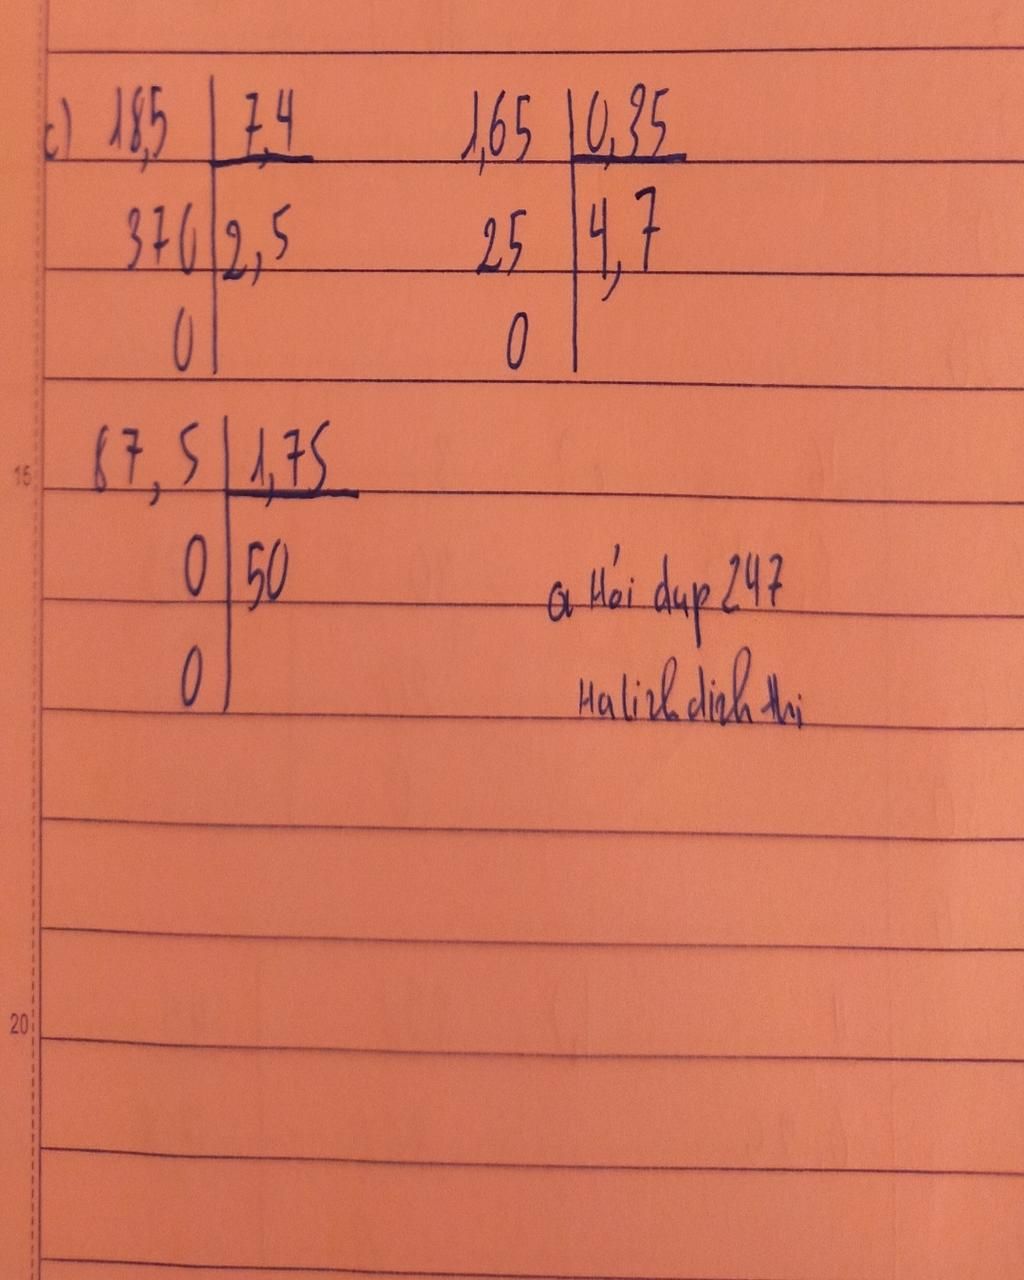 c) 18,5 | 7,4 1,65 | 0,35
370 | 2,5 25 | 4,7
0 0
87,5 | 1,75
15
0 | 50
a Hỏi đup 247
0
Halinh dinh thi
20